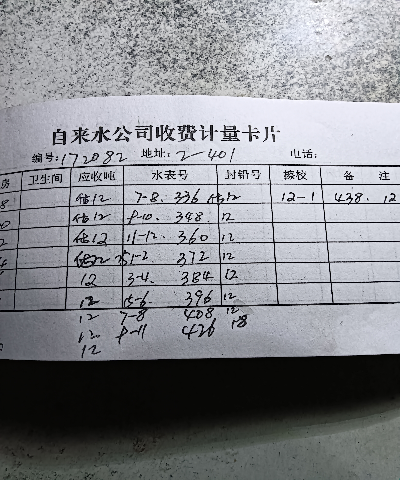 自来水公司收费计量卡片
编号:172082 地址:2-401 电话:
卫生间 应收吨 水表号 封铅号 检校 备 注
估12 7-8. 336 估12 12-1 438. 12
估12 9-10. 348 12
估12 11-12. 360 12
估12 251-2. 372 12
12 3-4. 384 12
12 5-6 396 12
12 7-8 408 12
9-11 426 18
12